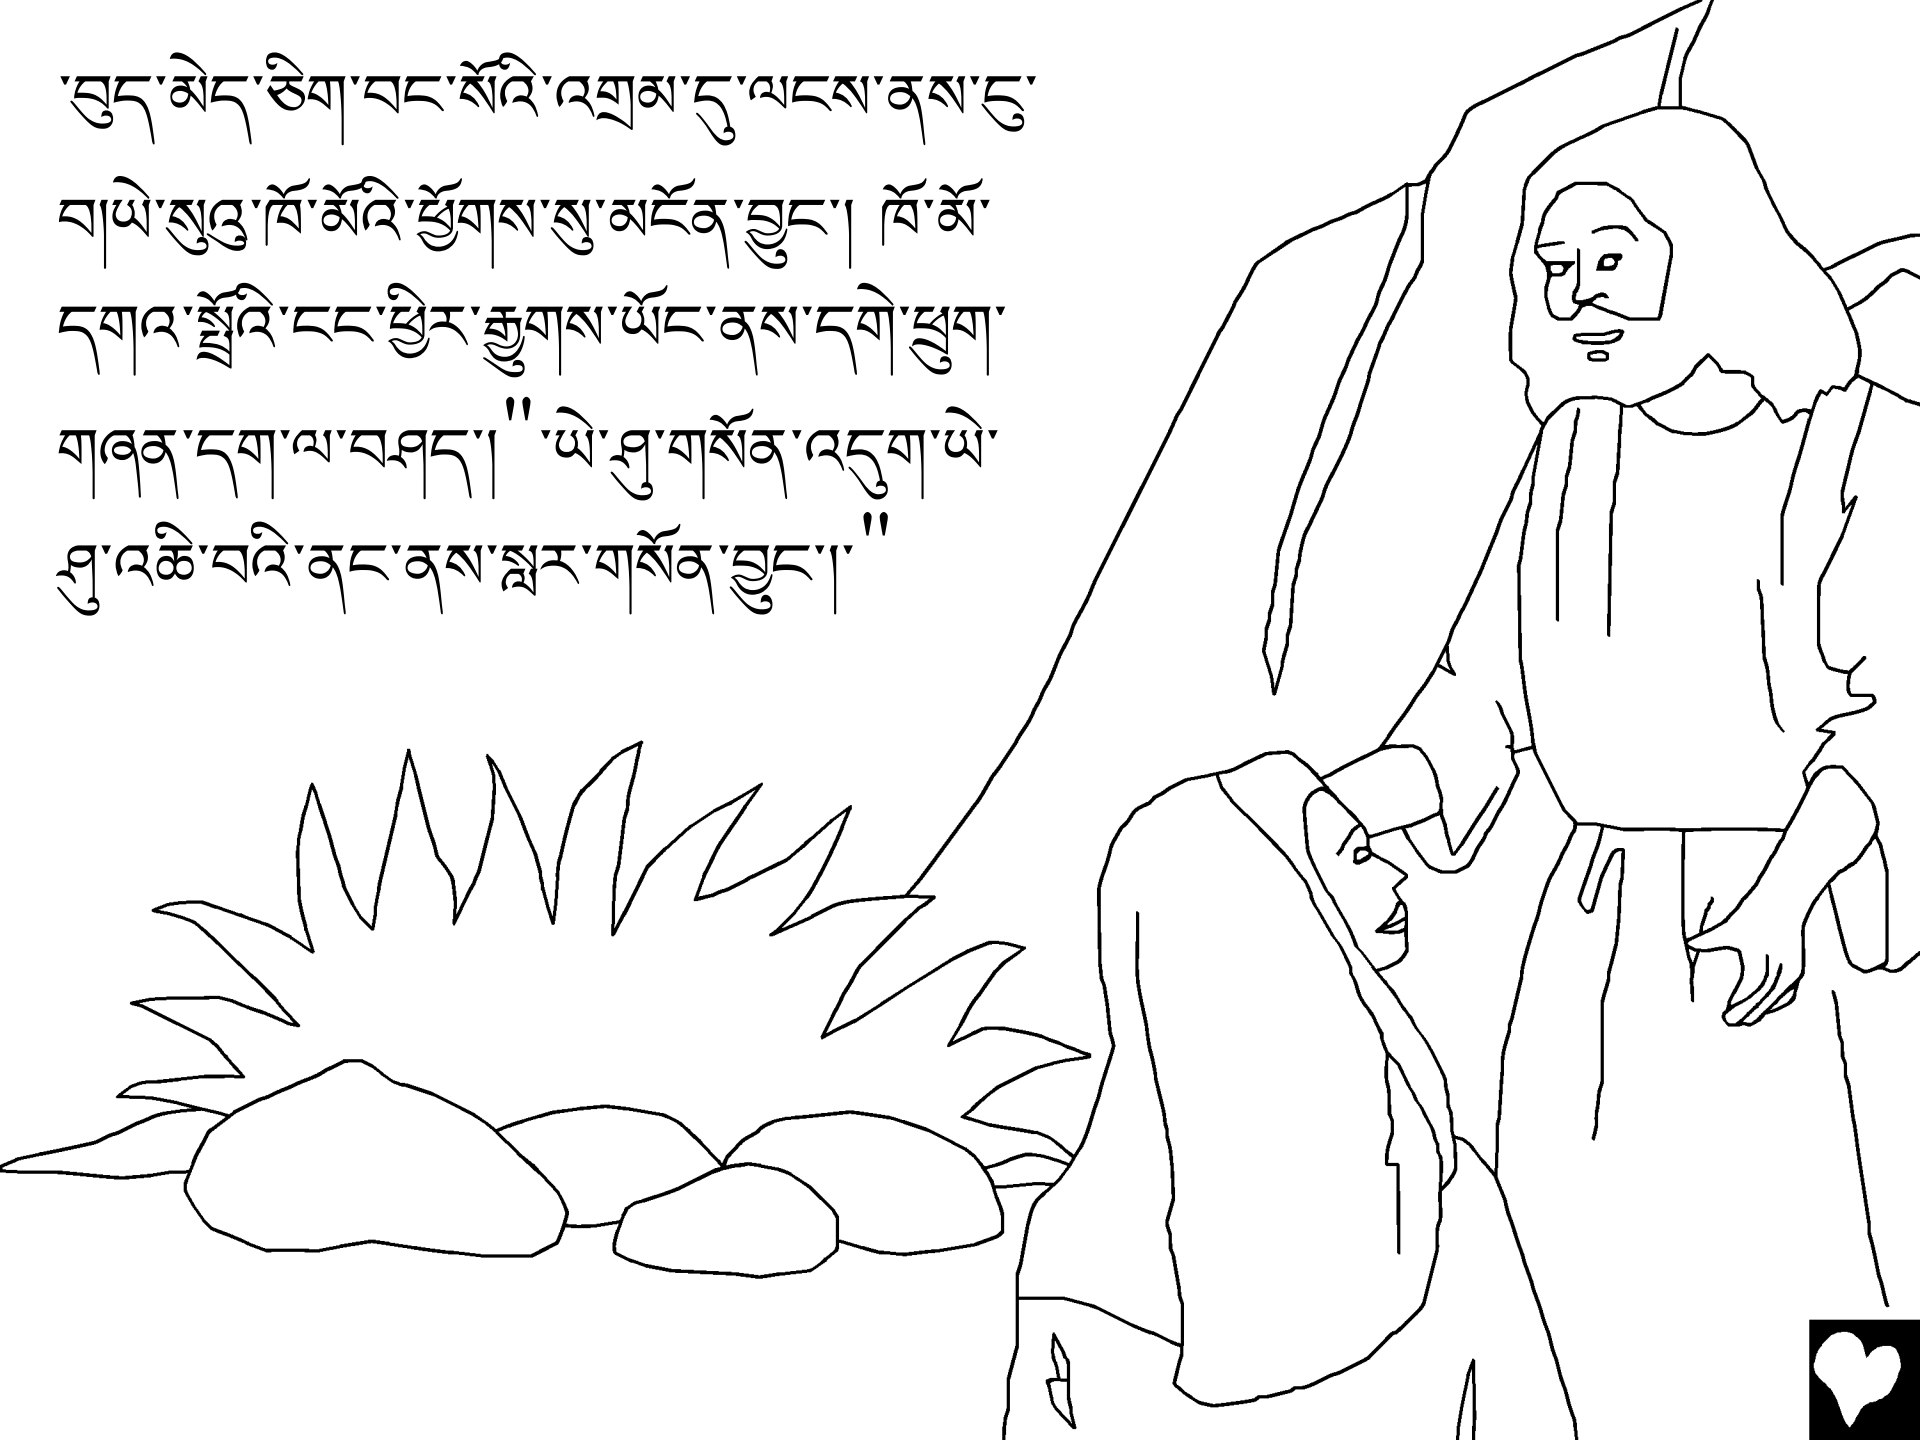 ་བུད་མེད་ཅིག་བང་སོའི་འགྲམ་དུ་ལངས་ནས་ངུ་
བ།ཡེ་སུའུ་ཁོ་མོའི་ཕྱོགས་སུ་མངོན་བྱུང་། ཁོ་མོ་
དགའ་སྤྲོའི་ངང་ཕྱིར་རྒྱུགས་ཡོང་ནས་དགེ་ཕྲུག་
གཞན་དག་ལ་བཤད་།"་ཡེ་ཤུ་གསོན་འདུག་ཡེ་
ཤུ་འཆི་བའི་ནང་ནས་སླར་གསོན་བྱུང་།་"